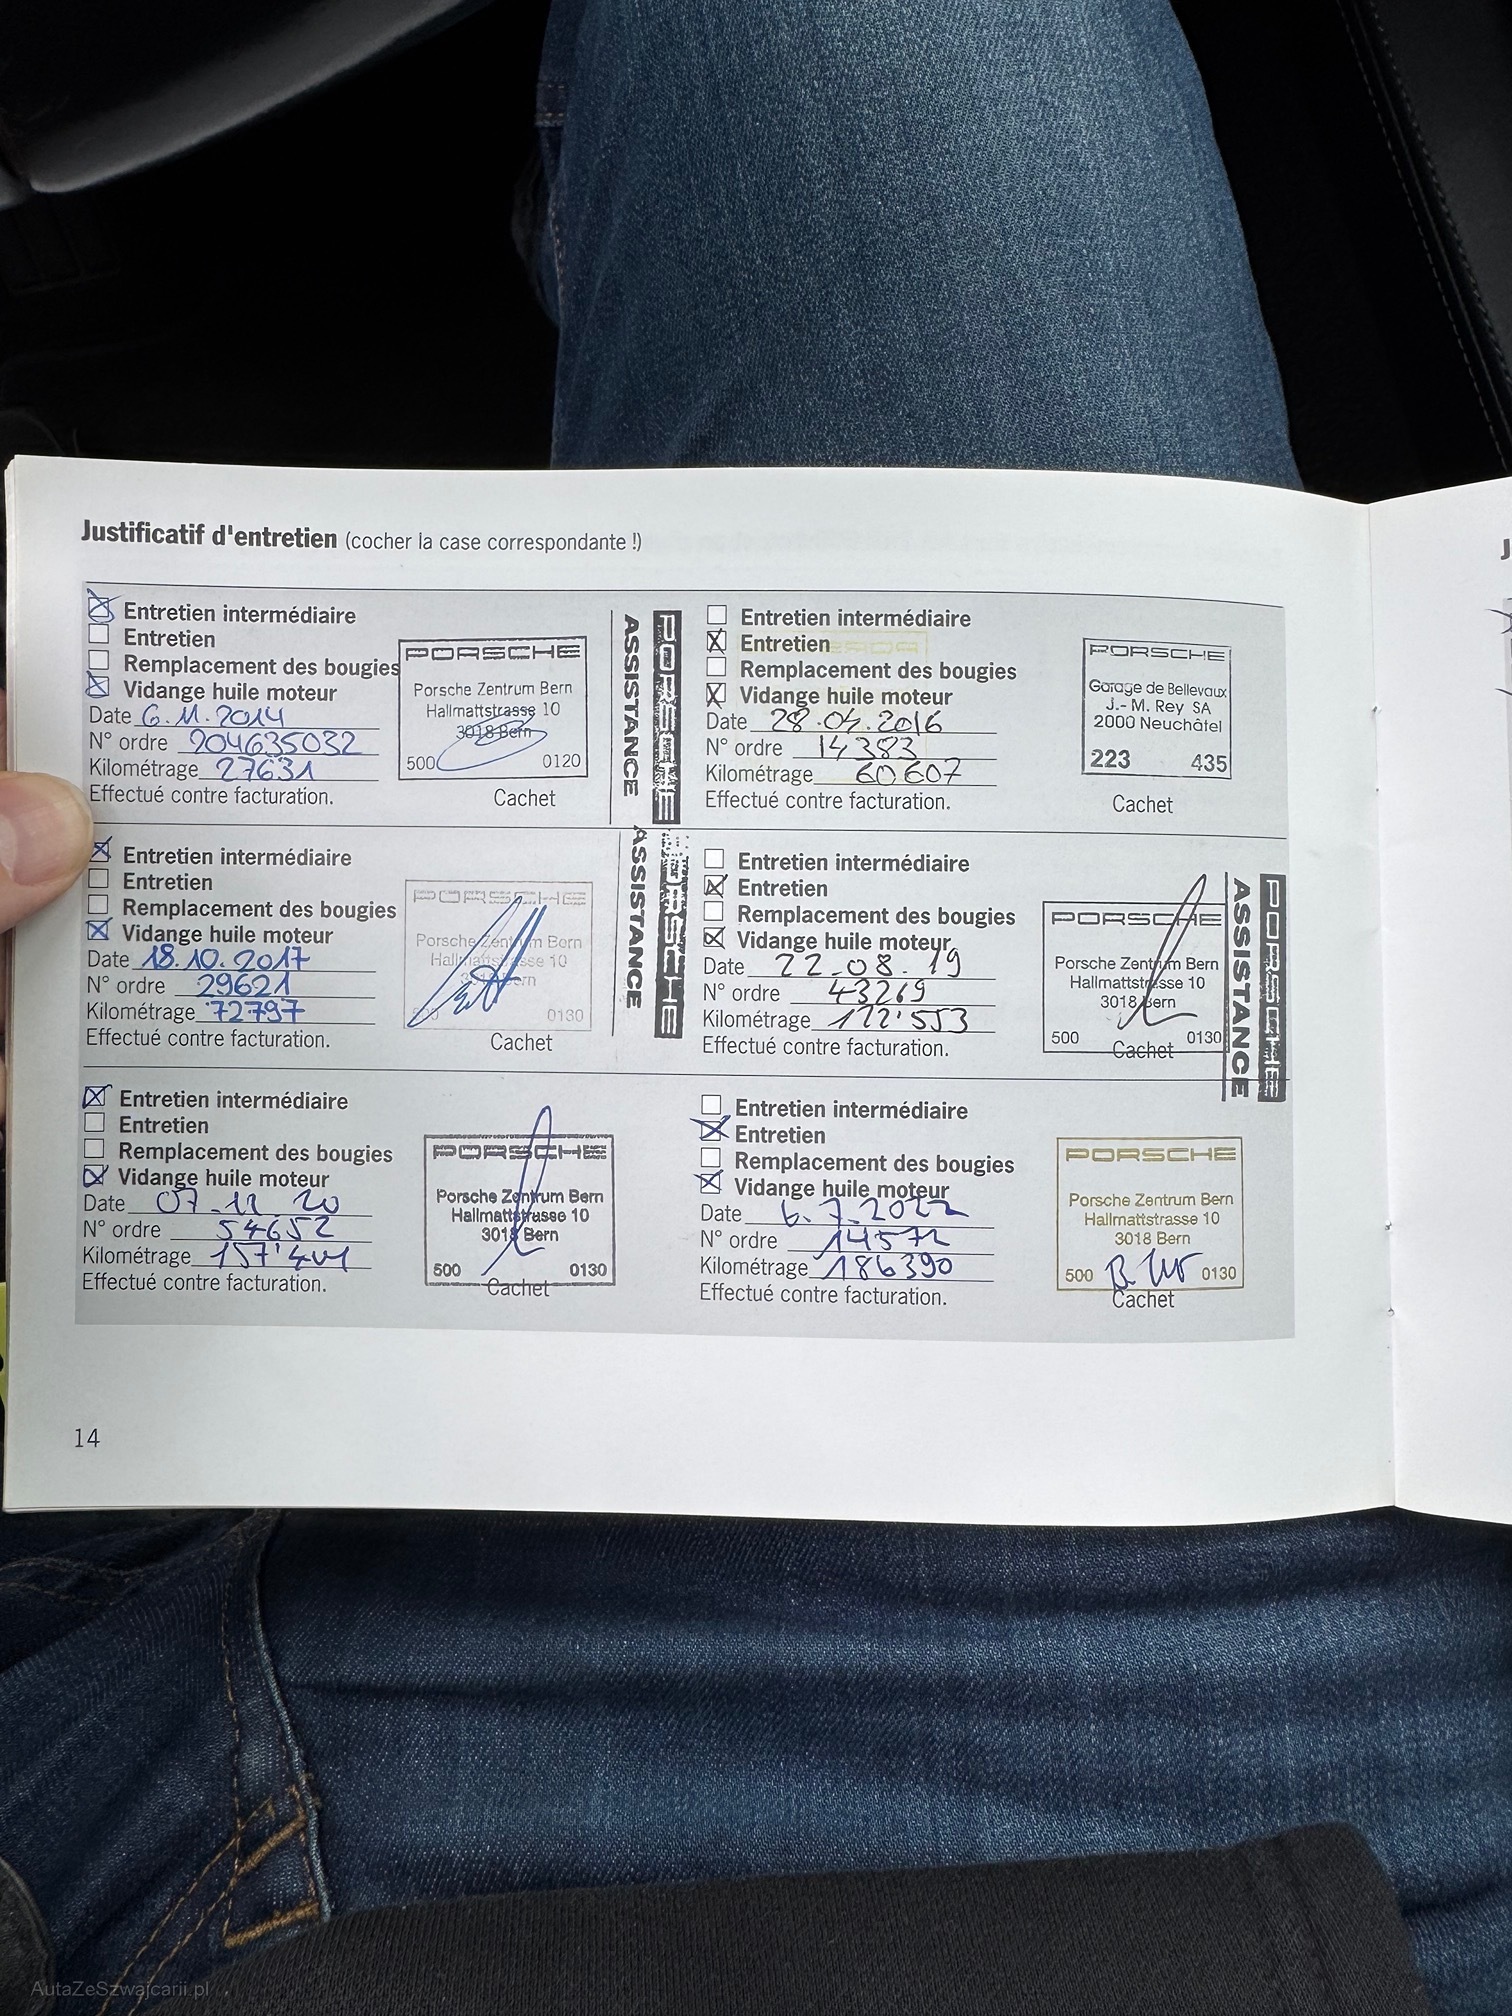 Justificatif d'entretien (cocher la case correspondante !)
Entretien intermédiaire
Entretien
Remplacement des bougies
Vidange huile moteur
Date 6.11.2014
N° ordre 204635032
Kilométrage 27631
Effectué contre facturation.
PORSCHE
Porsche Zentrum Bern
Hallmattstrasse 10
3018 Bern
500 0120
Cachet
ASSISTANCE
PORSCHE
Entretien intermédiaire
Entretien
Remplacement des bougies
Vidange huile moteur
Date 28.04.2016
N° ordre 14383
Kilométrage 60607
Effectué contre facturation.
PORSCHE
Garage de Bellevaux
J.- M. Rey SA
2000 Neuchâtel
223 435
Cachet
Entretien intermédiaire
Entretien
Remplacement des bougies
Vidange huile moteur
Date 18.10.2017
N° ordre 29621
Kilométrage 72797
Effectué contre facturation.
PORSCHE
Porsche Zentrum Bern
Hallmattstrasse 10
3018 Bern
500 0130
Cachet
ASSISTANCE
PORSCHE
Entretien intermédiaire
Entretien
Remplacement des bougies
Vidange huile moteur
Date 22.08.19
N° ordre 43269
Kilométrage 122'553
Effectué contre facturation.
PORSCHE
Porsche Zentrum Bern
Hallmattstrasse 10
3018 Bern
500 0130
Cachet
ASSISTANCE
PORSCHE
Entretien intermédiaire
Entretien
Remplacement des bougies
Vidange huile moteur
Date 07.12.20
N° ordre 54652
Kilométrage 157'401
Effectué contre facturation.
PORSCHE
Porsche Zentrum Bern
Hallmattstrasse 10
3018 Bern
500 0130
Cachet
Entretien intermédiaire
Entretien
Remplacement des bougies
Vidange huile moteur
Date 6.7.2022
N° ordre 14572
Kilométrage 186390
Effectué contre facturation.
PORSCHE
Porsche Zentrum Bern
Hallmattstrasse 10
3018 Bern
500 0130
Cachet
14
J
AutaZeSzwajcarii.pl